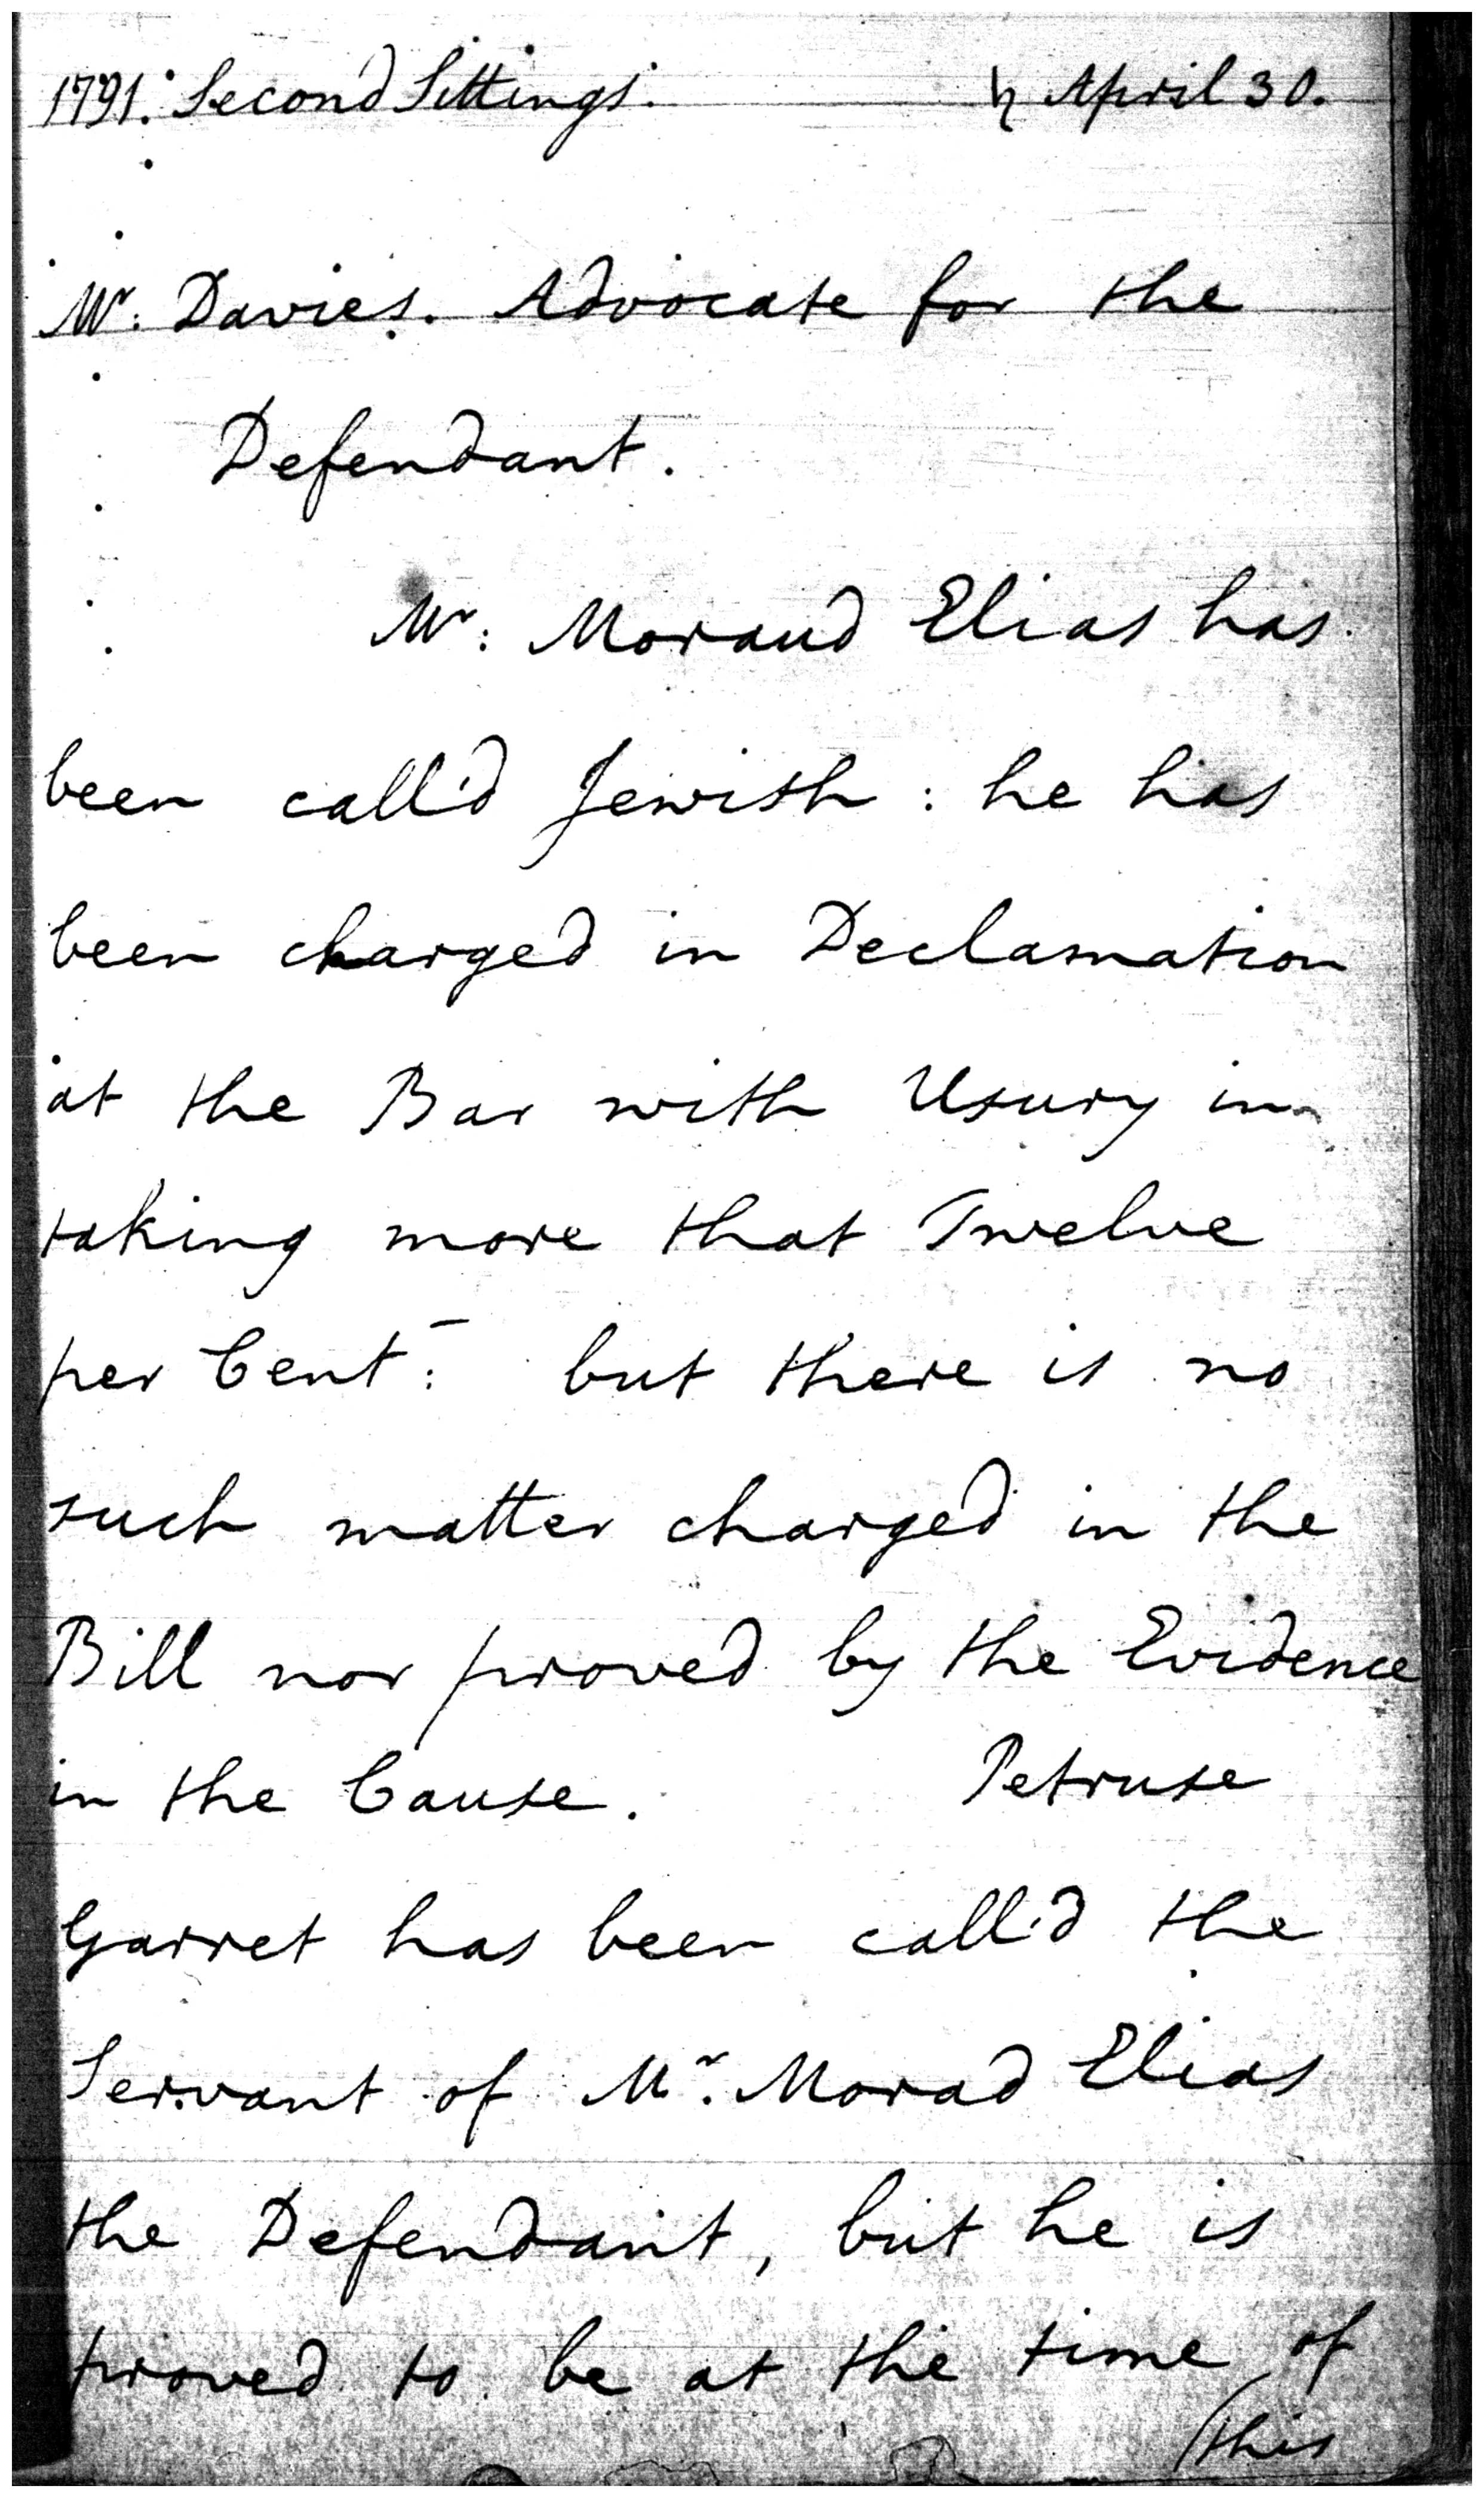 1791. Second Sittings. ♄ April 30.
Mr. Davies. Advocate for the
Defendant.
Mr: Moraud Elias has
been call'd Jewish: he has
been charged in Declamation
at the Bar with Usury in
taking more that Twelve
per Cent: but there is no
such matter charged in the
Bill nor proved by the Evidence
in the Cause. Petruse
Garret has been call'd the
Servant of Mr. Morad Elias
the Defendant, but he is
proved to be at the time of
(this